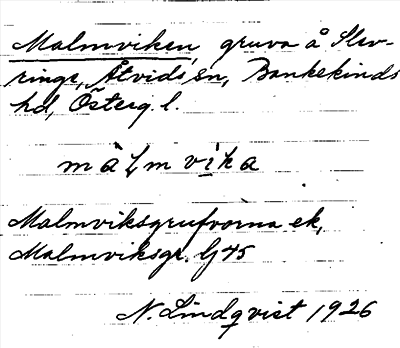 Malmviken, gruva å Slev-
ringe, Åtvids sn, Bankekinds
hd, Österg. l.
màlmvika
Malmviksgrufvorna ek,
Malmviksgr. Gj 45
N. Lindqvist 1926